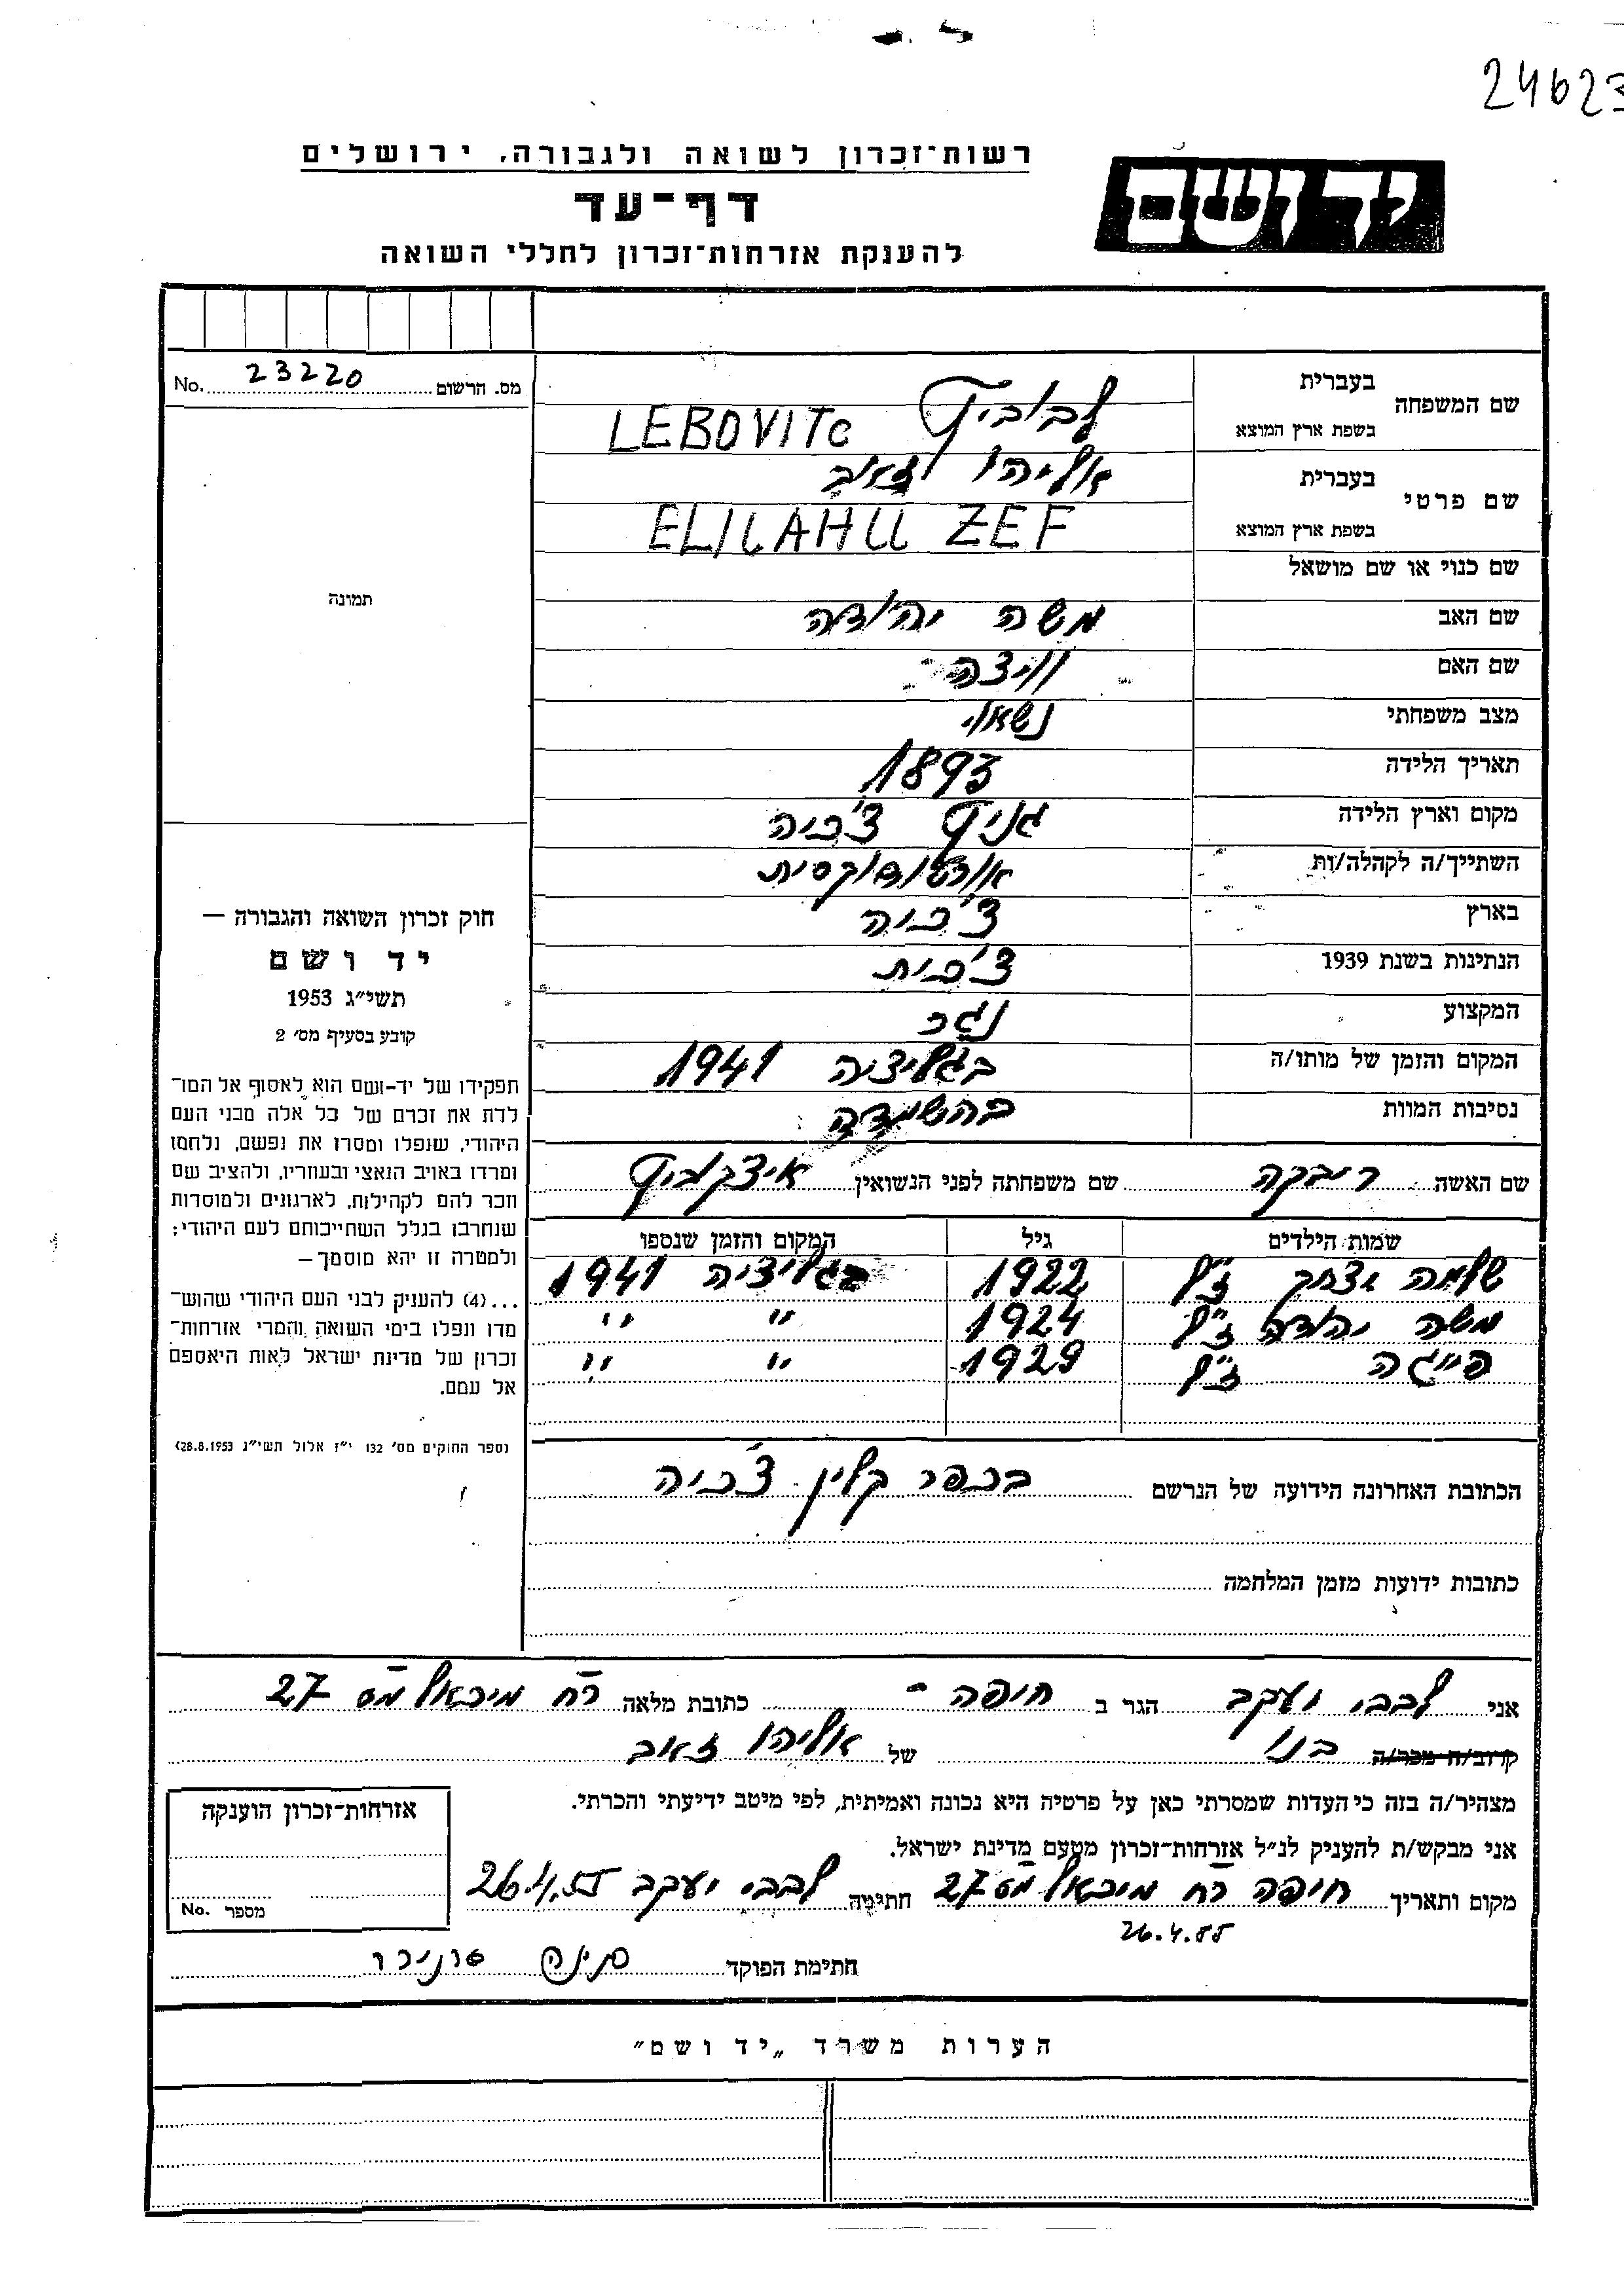 24623
רשות־זכרון לשואה ולגבורה, ירושלים
יד ושם
דף־עד
להענקת אזרחות־זכרון לחללי השואה
No. 23220 מס. הרשום
שם המשפחה
בעברית לבוביץ
בשפת ארץ המוצא LEBOVITC
שם פרטי
בעברית אליהו זאב
בשפת ארץ המוצא ELIUAHU ZEF
שם כנוי או שם מושאל
שם האב משה יהודה
שם האם
מצב משפחתי נשאוי
תאריך הלידה 1893
מקום וארץ הלידה גניץ צ'כיה
השתייך/ה לקהלה/ות אורטודוקסית
בארץ צ'כיה
הנתינות בשנת 1939 צ'כית
המקצוע נגר
המקום והזמן של מותו/ה בגליציה 1941
נסיבות המוות בהשמדה
תמונה
חוק זכרון השואה והגבורה —
יד ושם
תשי״ג 1953
קובע בסעיף מס׳ 2
תפקידו של יד-ושם הוא לאסוף אל המו־
לדת את זכרם של כל אלה מבני העם
היהודי, שנפלו ומסרו את נפשם, נלחמו
ומרדו באויב הנאצי ובעוזריו, ולהציב שם
וזכר להם לקהילות, לארגונים ולמוסדות
שנחרבו בגלל השתייכותם לעם היהודי;
ולמטרה זו יהא מוסמך—
...(4) להעניק לבני העם היהודי שהוש־
מדו ונפלו בימי השואה והמרי אזרחות־
זכרון של מדינת ישראל לאות היאספם
אל עמם.
(ספר החוקים מס׳ 132 י״ז אלול תשי״ג 28.8.1953)
שם האשה רבקה שם משפחתה לפני הנשואין איצקוביץ
שמות הילדים גיל המקום והזמן שנספו
שלמה יצחק ז"ל 1922 בגליציה 1941
משה יהודה ז"ל 1924 " "
פייגה ז"ל 1929 " "
הכתובת האחרונה הידועה של הנרשם בכפר קלין צ'כיה
כתובות ידועות מזמן המלחמה
אני לבבי יעקב הגר ב חיפה - כתובת מלאה רח מיכאל מס 27
קרוב/ה מכר/ה בנו של אליהו זאב
מצהיר/ה בזה כי העדות שמסרתי כאן על פרטיה היא נכונה ואמיתית, לפי מיטב ידיעתי והכרתי.
אני מבקש/ת להעניק לנ״ל אזרחות־זכרון מטעם מדינת ישראל.
מקום ותאריך חיפה רח מיכאל מס 27 חתימה לבבי יעקב 26.4.55
26.4.55
חתימת הפוקד
אזרחות־זכרון הוענקה
No. מספר
הערות משרד „יד ושם״